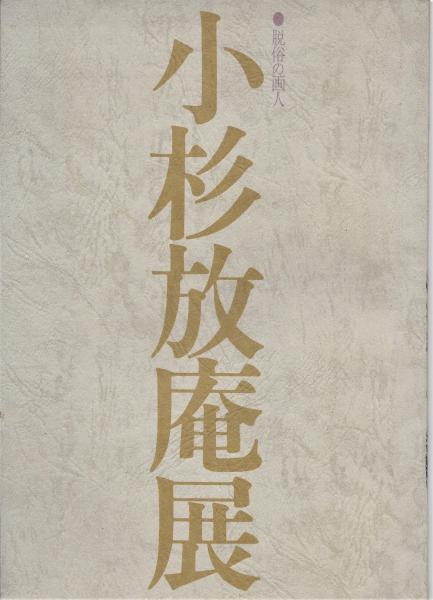 ●脱俗の画人
小杉放庵展